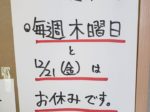 毎週木曜日
と
12/21(金)は
お休みです。